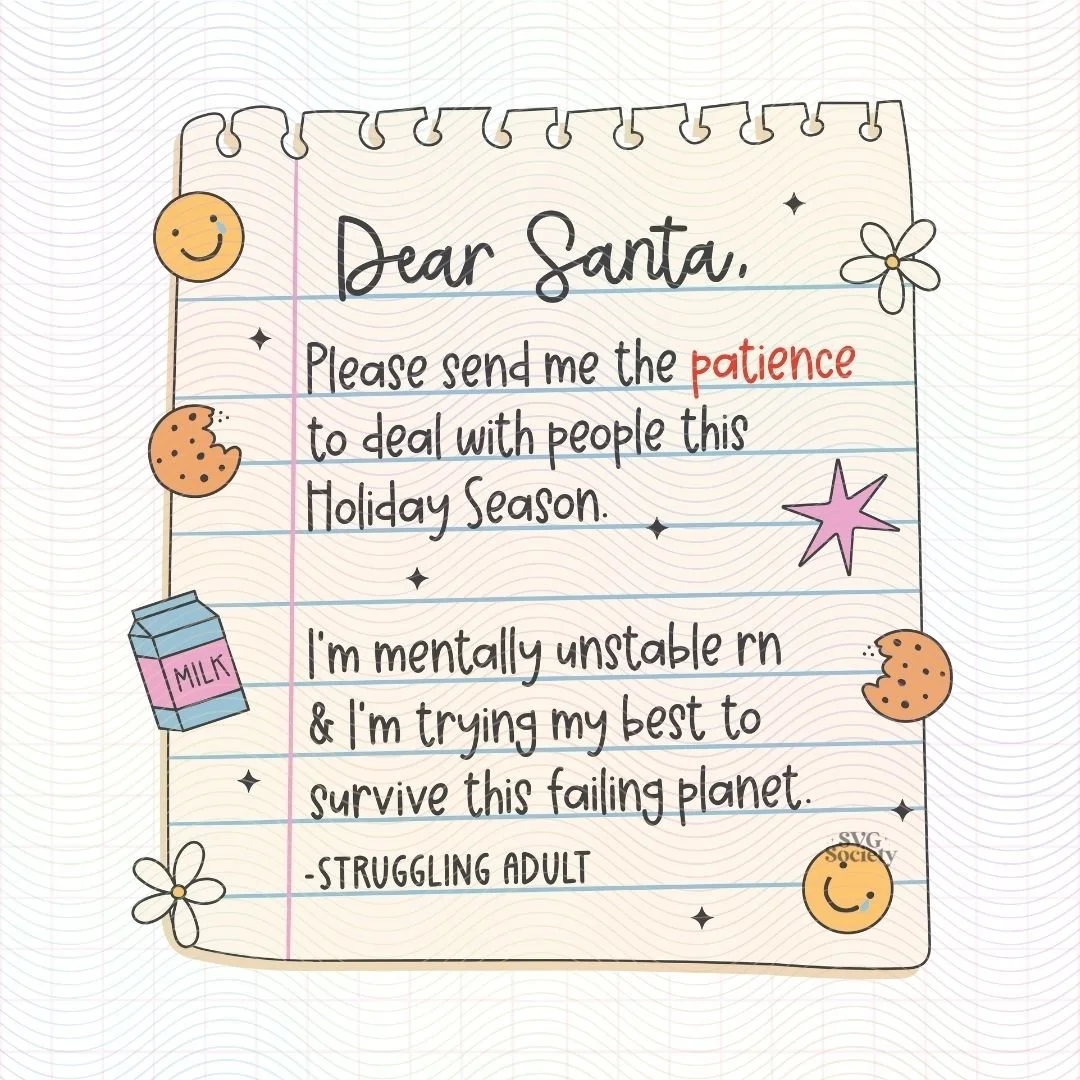 Dear Santa,
Please send me the patience
to deal with people this
Holiday Season.
I'm mentally unstable rn
& I'm trying my best to
survive this failing planet.
-STRUGGLING ADULT
MILK
SVG
Society